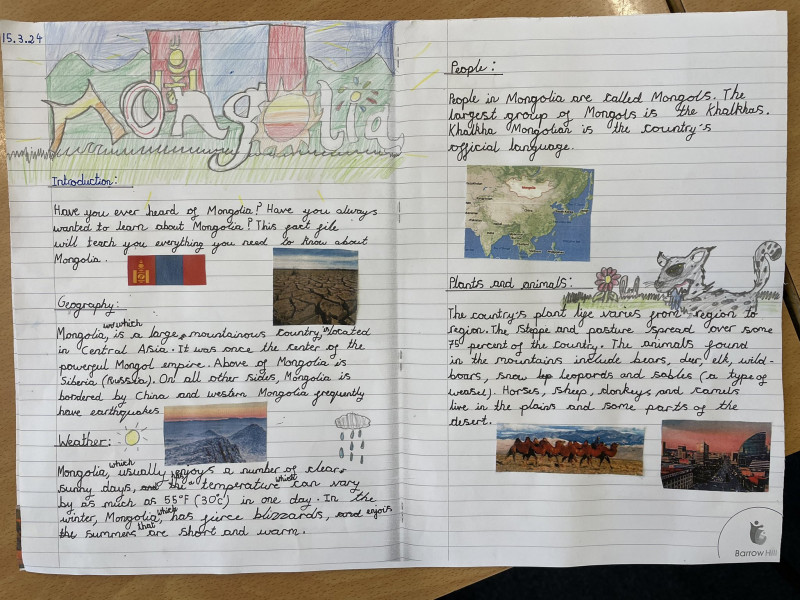 15.3.24
Mongolia
Introduction:
Have you ever heard of Mongolia? Have you always
wanted to learn about Mongolia? This fact file
will teach you everything you need to know about
Mongolia.
Geography:
which
Mongolia, is a large, mountainous country, located
in Central Asia. It was once the center of the
powerful Mongol empire. Above of Mongolia is
Siberia (Russia). On all other sides, Mongolia is
bordered by China and western Mongolia frequently
have earthquakes
Weather:
which
Mongolia, usually enjoys a number of clear,
sunny days, and the temperature can vary
which
by as much as 55°F (30°c) in one day. In the
which
winter, Mongolia, has fierce blizzards, and enjois
that
the summers are short and warm.
People:
People in Mongolia are called Mongols. The
largest group of Mongols is the Khalkhas.
Khalkha Mongolian is the country's
official language.
Mongolia
Plants and animals:
The country's plant life varies from region to
region. The steppe and pasture spread over some
75 percent of the country. The animals found
in the mountains include bears, deer, elk, wild-
boars, snow lep leopards and sables (a type of
weasel). Horses, sheep, donkeys and camels
live in the plains and some parts of the
desert.
Barrow Hill